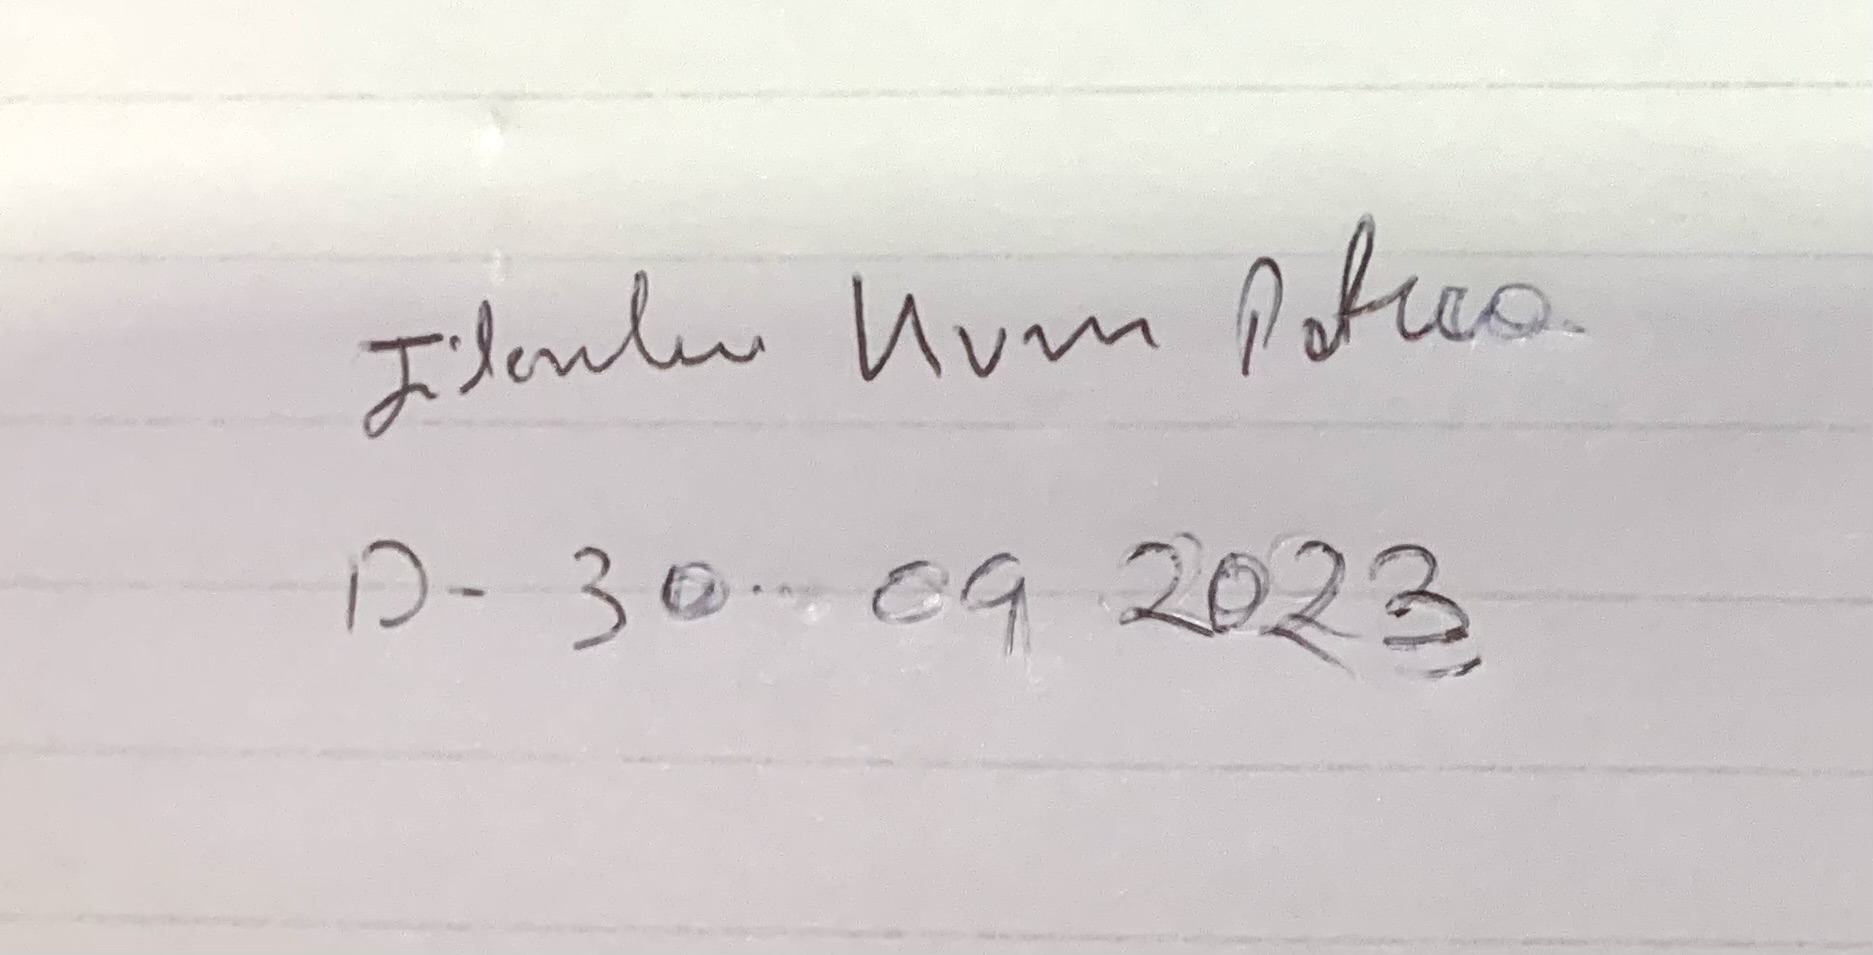 Jitendra Kumar Patra
D- 30.. 09 2023